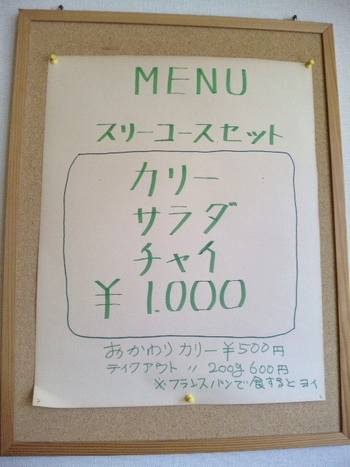 MENU
スリーコースセット
カリー
サラダ
チャイ
¥1.000
おかわりカリー¥500円
テイクアウト 〃 200g 600円
※フランスパンで食するとヨイ